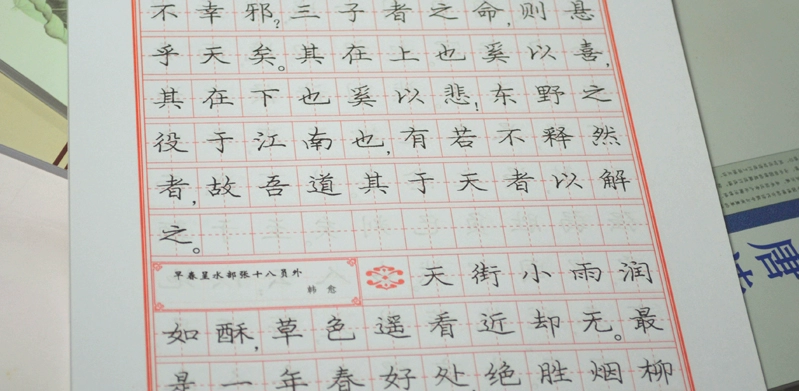 不幸邪?三子者之命,则悬
乎天矣。其在上也奚以喜,
其在下也奚以悲!东野之
役于江南也,有若不释然
者,故吾道其于天者以解
之。
早春呈水部张十八员外
韩愈
天街小雨润
如酥,草色遥看近却无。最
是一年春好处,绝胜烟柳
唐